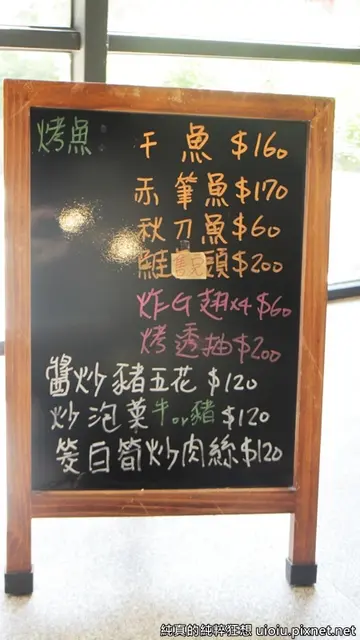 烤魚: 干魚 $160
示筆魚 $170
秋刀魚 $60
鮭售完頭 $200
炸G翅x4 $60
烤透抽 $200
醬炒豬五花 $120
炒泡菜牛or豬 $120
筊白筍炒肉絲 $120
純真的純粹狂想 uioiu.pixnet.net